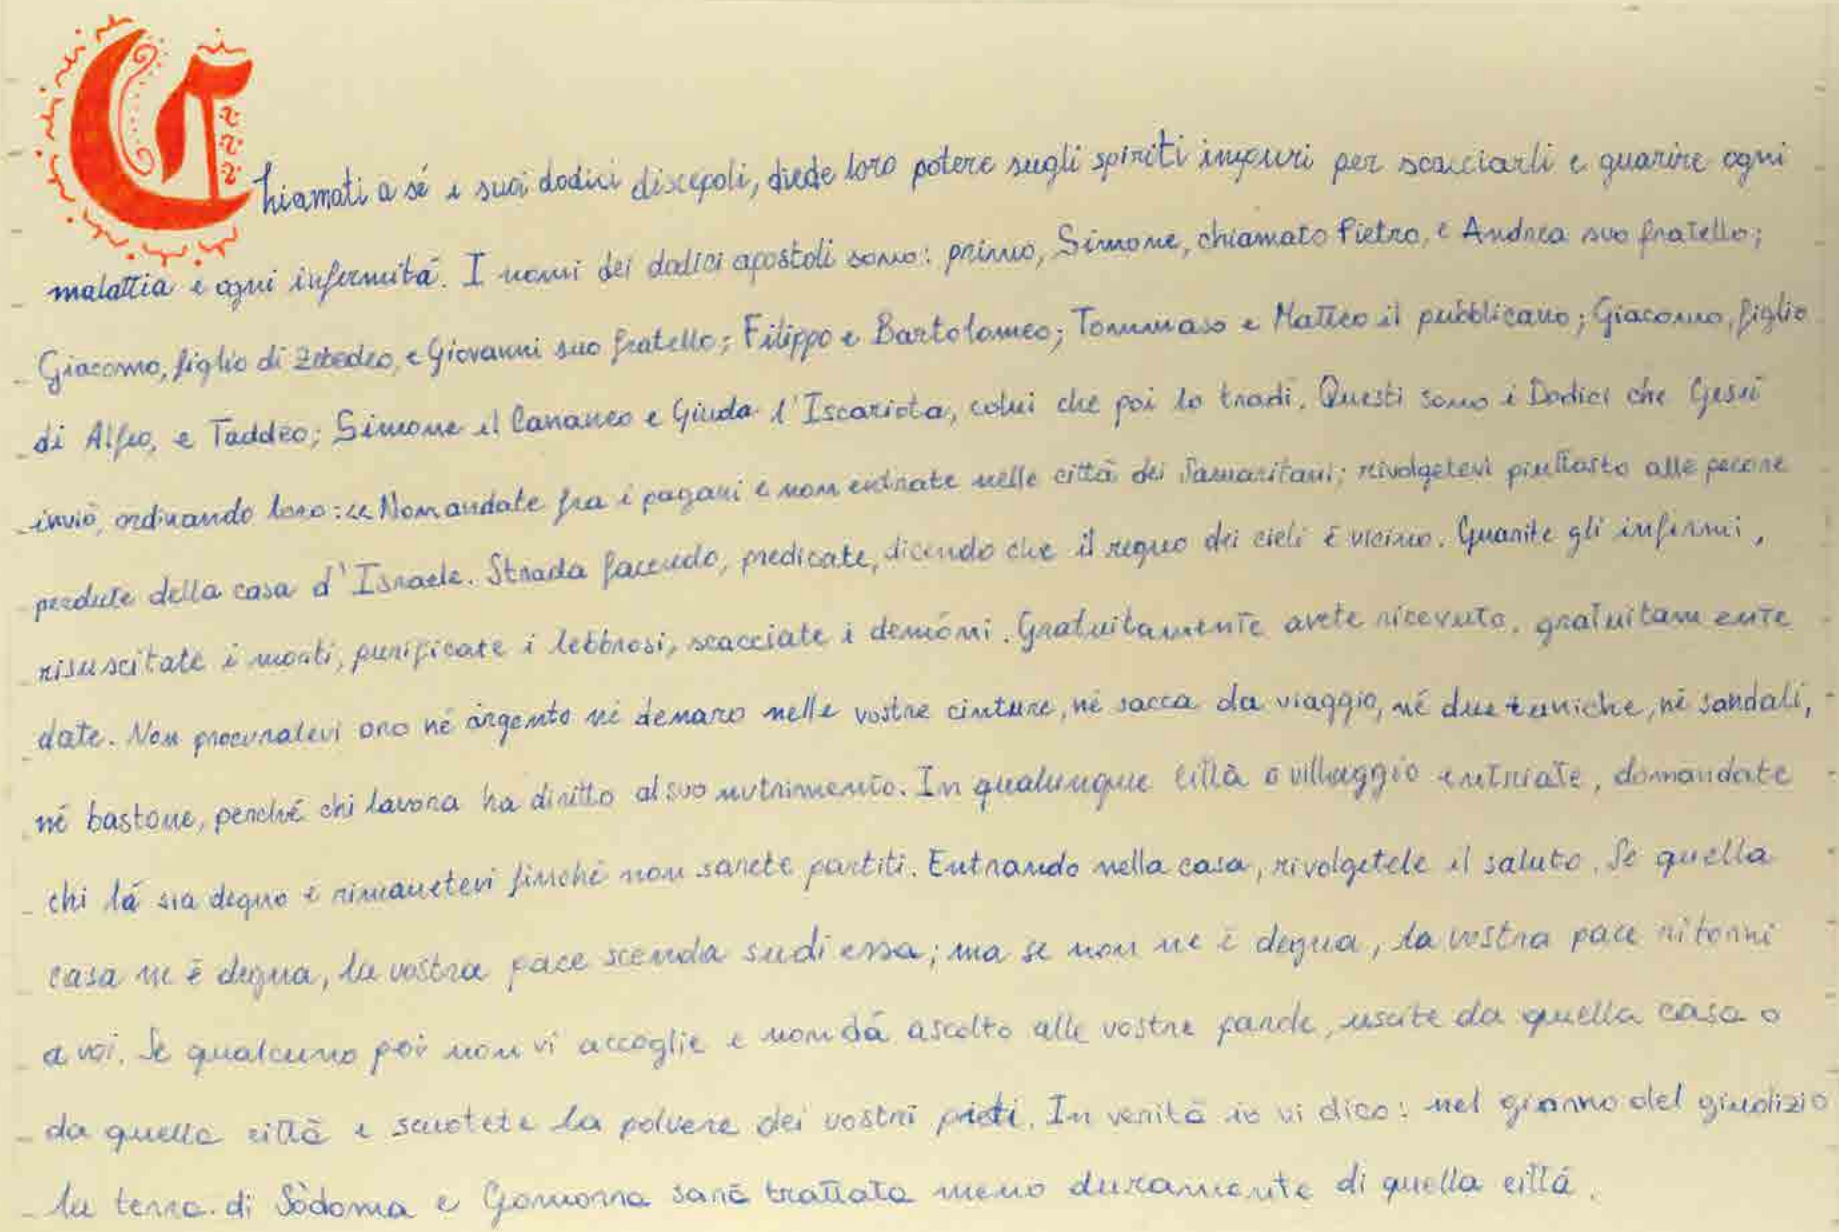 Chiamati a sé i suoi dodici discepoli, diede loro potere sugli spiriti impuri per scacciarli e guarire ogni
malattia e ogni infermità. I nomi dei dodici apostoli sono: primo, Simone, chiamato Pietro, e Andrea suo fratello;
Giacomo, figlio di Zebedeo, e Giovanni suo fratello; Filippo e Bartolomeo; Tommaso e Matteo il pubblicano; Giacomo, figlio
di Alfeo, e Taddeo; Simone il Cananeo e Giuda l'Iscariota, colui che poi lo tradì. Questi sono i Dodici che Gesù
inviò, ordinando loro: «Non andate fra i pagani e non entrate nelle città dei Samaritani; rivolgetevi piuttosto alle pecore
perdute della casa d'Israele. Strada facendo, predicate, dicendo che il regno dei cieli è vicino. Guarite gli infermi,
risuscitate i morti, purificate i lebbrosi, scacciate i demòni. Gratuitamente avete ricevuto, gratuitamente
date. Non procuratevi oro né argento né denaro nelle vostre cinture, né sacca da viaggio, né due tuniche, né sandali,
né bastone, perché chi lavora ha diritto al suo nutrimento. In qualunque città o villaggio entriate, domandate
chi là sia degno e rimanetevi finché non sarete partiti. Entrando nella casa, rivolgetele il saluto. Se quella
casa ne è degna, la vostra pace scenda su di essa; ma se non ne è degna, la vostra pace ritorni
a voi. Se qualcuno poi non vi accoglie e non dà ascolto alle vostre parole, uscite da quella casa o
da quella città e scuotete la polvere dei vostri piedi. In verità io vi dico: nel giorno del giudizio
la terra di Sòdoma e Gomorra sarà trattata meno duramente di quella città.